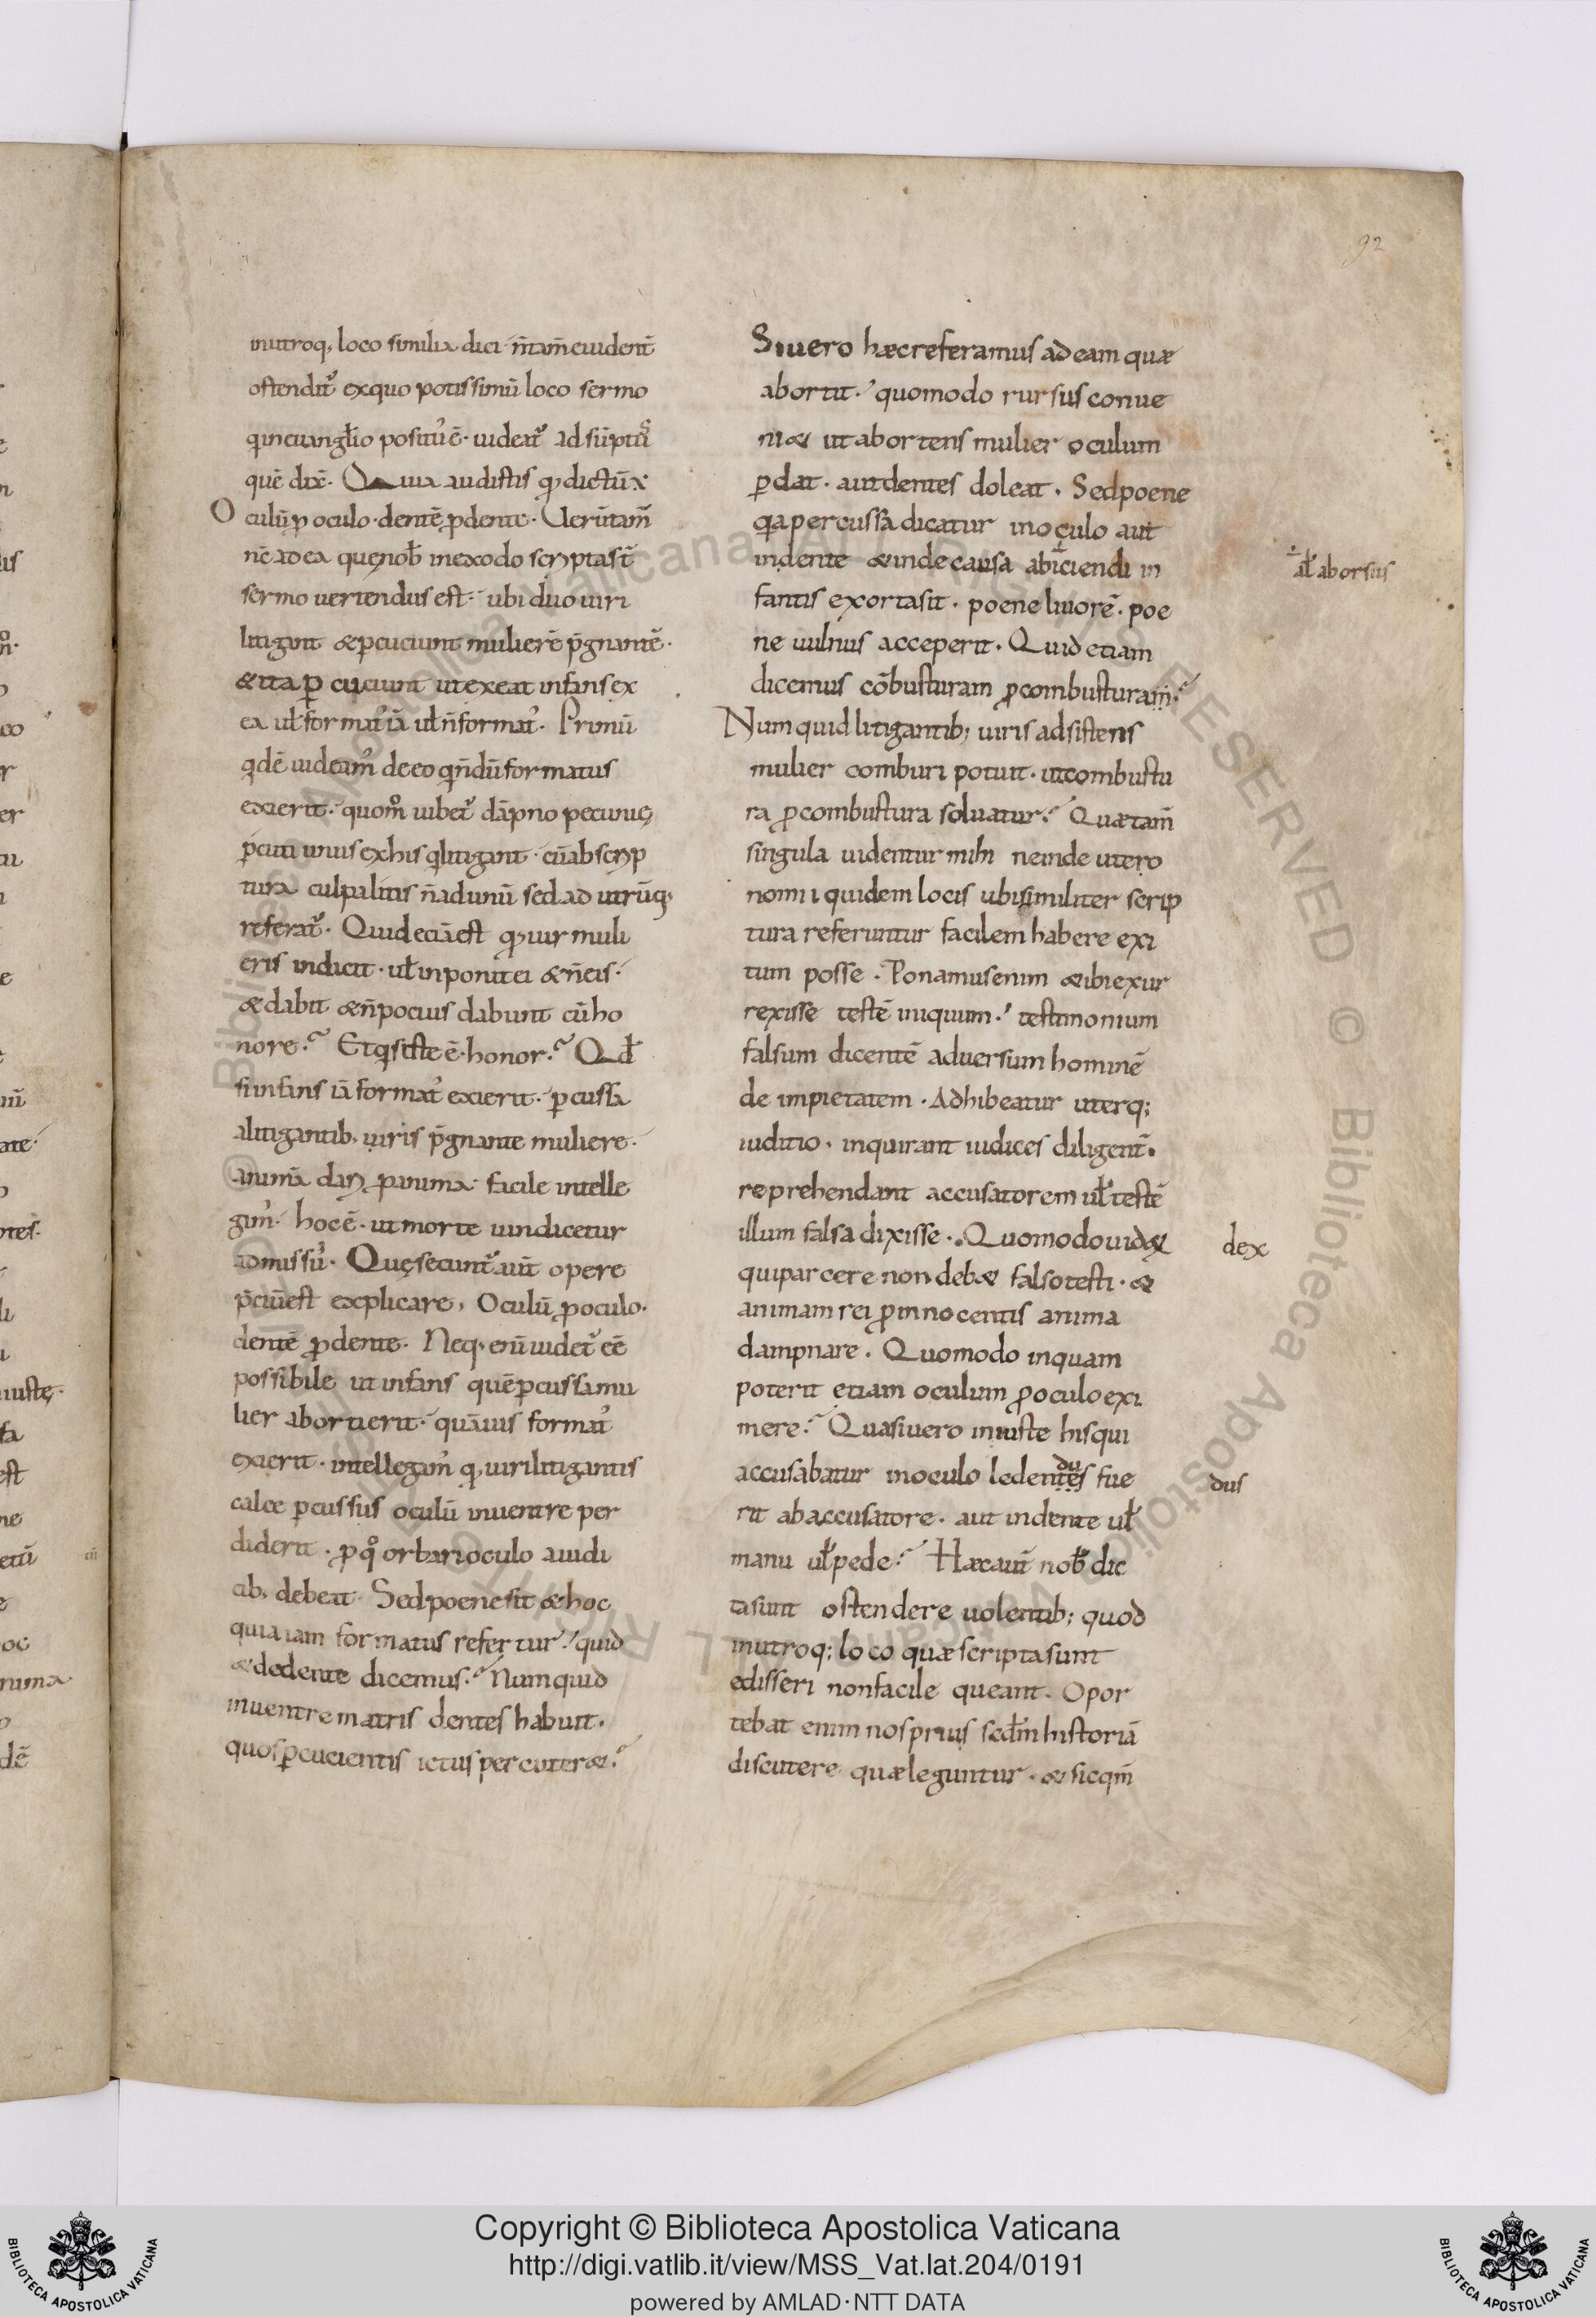 92
inutroq; loco similia dici· n̄ tam̄ euident̄
ostendit᷑ exquo potissimū loco sermo
qui in euangl̄io posit᷑ ē· uideat᷑ adsūptus
quē dix̄· Quia audistis qđ dictū x̄
Oculū ꝓ oculo· dentē ꝓ dente· Uerūtam̄
nē ad ea quę nob̄ in exodo scriptas̄t
sermo uertendus est· ubi duo uiri
litigant & ꝑcuciunt mulierē p̄gnantē·
& ita ꝑcuciunt ut exeat infans ex
ea ul̄ format᷑ iā ul̄ n̄ format᷑· Primū
qdē uideam᷑ de eo qn̄dū formatus
exierit· quom̊ iubet᷑ dāpno pecunię
ꝑcuti unus ex his qi litigant· cū ab scrip
tura culpa litis n̄ ad unū sed ad utrūq;
referat᷑· Quid eciā est qđ uir muli
eris indicit· ul̄ inponit ei & n̄ eis·
& dabit & n̄ pocius dabunt cū ho
nore·? Et qis iste ē· honor·? Qđ
si infans iā format᷑ exierit· ꝑcussa
a litigantib; uiris p̄gnante muliere·
animā dari ꝓ anima· facile intelle
gim᷑· hoc ē· ut morte uindicetur
admissū· Quę secunt᷑ aut̄ opere
p̄ciū est explicare, Oculū ꝓ oculo·
dentē ꝓ dente· Neq; enī uidet᷑ eē
possibile ut infans quē ꝑcussa mu
lier abortierit· quāuis format᷑
exierit· intellegam᷑ qđ uiri litigantis
calce ꝑcussus oculū in uentre per
diderit· ꝓ qo orbari oculo a iudi
cib; debeat· Sed poene sit & hoc
quia iam formatus refertur·? quid
& de dente dicemus·? Numquid
in uentre matris dentes habuit·
quos ꝑcucientis ictus percuter&·?
Si uero hæc referamus ad eam quæ
abortit·? quomodo rursus conue
ni& ut abortens mulier oculum
ꝑdat· aut dentes doleat· Sed poene
qa percussa dicatur in oculo aut
in dente & inde causa abiciendi in
fantis exorta sit· poene liuorē· poe
ne uulnus acceperit· Quid etiam
dicemus cōbusturam ꝓ combusturam·?
Numquid litigantib; uiris adsistens
mulier comburi potuit· ut combustu
ra ꝓ combustura soluatur·? Quæ tam̄
singula uidentur mihi ne inde utero
nomii quidem locis ubi similiter scrip
tura referuntur facilem habere exi
tum posse· Ponamus enim & ibi exur
rexisse testē iniquum·? testimonium
falsum dicentē aduersum hominē
de impietatem· Adhibeatur uterq;
iuditio· inquirant iudices diligent̄·
reprehendant accusatorem ul̄ testē
illum falsa dixisse· Quomodo uid&
qui parcere non deb& falso testi· &
animam rei ꝓ innocentis anima
dampnare· Quomodo inquam
poterit etiam oculum ꝓ oculo exi
mere·? Quasi uero iniuste his qui
accusabatur in oculo ledentes fue
rit ab accusatore· aut in dente ul̄
manu ul̄ pede·? Hæc aut̄ nob̄ dic
ta sunt ostendere uolentib; quod
inutroq; loco quæ scripta sunt
edisseri non facile queant· Opor
tebat enim nos prius sed̄m historiā
discutere quæ leguntur· & sic qm̄
al̄ aborsus
dex
du
dus
Copyright © Biblioteca Apostolica Vaticana
http://digi.vatlib.it/view/MSS_Vat.lat.204/0191
powered by AMLAD·NTT DATA
BIBLIOTECA APOSTOLICA VATICANA
BIBLIOTECA APOSTOLICA VATICANA